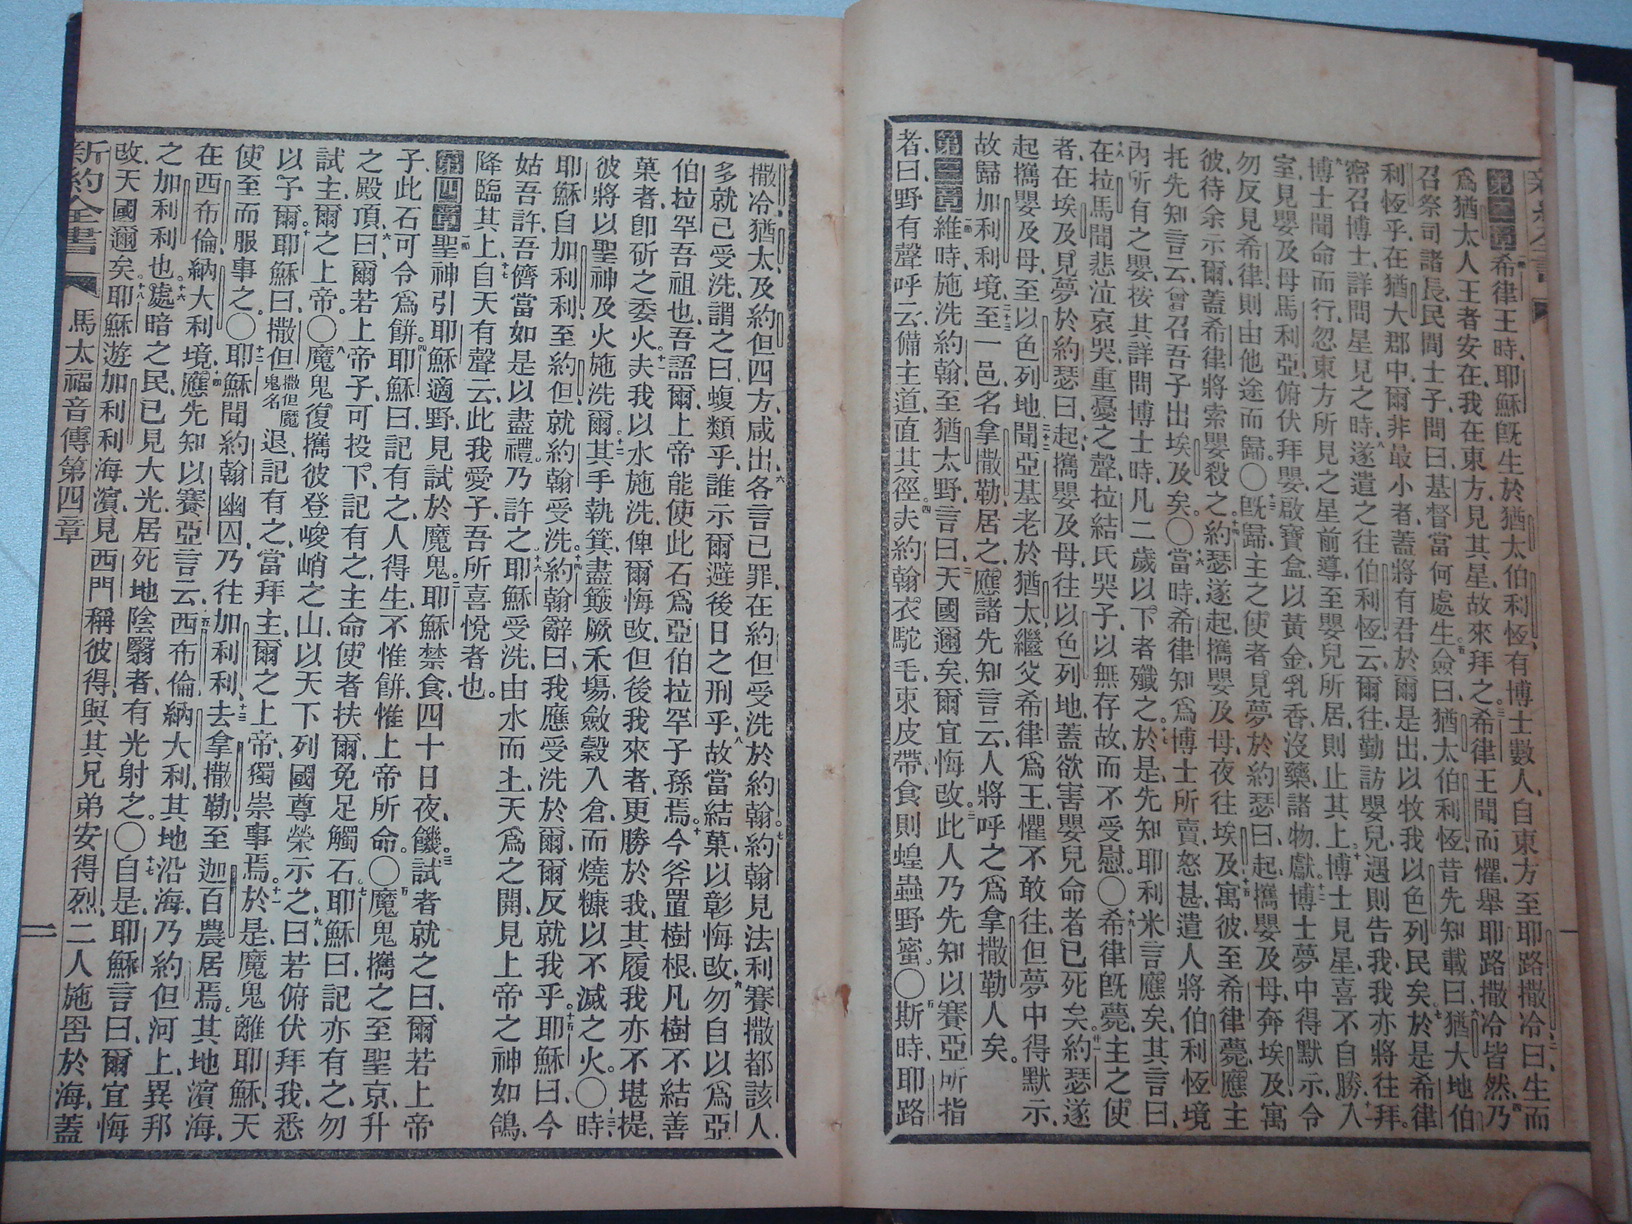 第二章希律王時、耶穌旣生於猶太伯利恆、有博士數人、自東方至耶路撒冷曰、生而
爲猶太人王者安在、我在東方、見其星、故來拜之、希律王聞而懼、舉耶路撒冷皆然、乃
召祭司諸長、民間士子、問曰、基督當何處生、僉曰、猶太伯利恆、昔先知載曰、猶大地伯
利恆乎、在猶大郡中、爾非最小者、蓋將有君於爾是出、以牧我以色列民矣、於是希律
密召博士、詳問星見之時、遂遣之往伯利恆、云、爾往勤訪嬰兒、遇則告我、我亦將往拜
博士聞命而行、忽東方所見之星前導、至嬰兒所居、則止其上、博士見星、喜不自勝、入
室、見嬰及母馬利亞、俯伏拜嬰、啟寶盒、以黃金乳香沒藥諸物獻、博士夢中得默示、令
勿反見希律、則由他途而歸○旣歸、主之使者見夢於約瑟曰、起、攜嬰及母、奔埃及、寓
彼、待余示爾、蓋希律將索嬰殺之、約瑟遂起、攜嬰及母、夜往埃及、寓彼至希律薨、應主
托先知言云、曾召吾子出埃及矣○當時希律知爲博士所賣、怒甚、遣人將伯利恆境
內所有之嬰、按其詳問博士時、凡二歲以下者殲之、於是先知耶利米言應矣、其言曰
在拉馬聞悲泣哀哭、重憂之聲、拉結氏哭子、以無存故、而不受慰○希律旣薨、主之使
者、在埃及見夢於約瑟曰、起、攜嬰及母、往以色列地、蓋欲害嬰兒命者已死矣、約瑟遂
起、攜嬰及母、至以色列地、聞亞基老於猶太繼父希律爲王、懼不敢往、但夢中得默示
故歸加利利境、至一邑、名拿撒勒居之、應諸先知言云、人將呼之爲拿撒勒人矣。
第三章維時、施洗約翰至猶太野、言曰、天國邇矣、爾宜悔改、此人乃先知以賽亞所指
者、曰、野有聲呼云、備主道、直其徑、夫約翰衣駝毛、束皮帶、食則蝗蟲野蜜○斯時、耶路
撒冷、猶太、及約但四方、咸出、各言己罪、在約但受洗於約翰、約翰見法利賽撒都該人
多就己受洗、謂之曰、蝮類乎、誰示爾避後日之刑乎、故當結菓以彰悔改、勿自以爲亞
伯拉罕吾祖也、吾語爾、上帝能使此石爲亞伯拉罕子孫焉、今斧置樹根、凡樹不結善
菓者、卽斫之委火、夫我以水施洗、俾爾悔改、但後我來者、更勝於我、其履我亦不堪提
彼將以聖神及火施洗爾、其手執箕、盡簸厥禾場、斂穀入倉、而燒糠以不滅之火○時
耶穌自加利利至約但、就約翰受洗、約翰辭曰、我應受洗於爾、爾反就我乎、耶穌曰、今
姑吾許、吾儕當如是以盡禮、乃許之、耶穌受洗、由水而上、天爲之開、見上帝之神如鴿
降臨其上、自天有聲云、此我愛子、吾所喜悅者也。
第四章聖神引耶穌適野、見試於魔鬼、耶穌禁食四十日夜、饑、試者就之曰、爾若上帝
子、此石可令爲餅、耶穌曰、記有之、人得生、不惟餅、惟上帝所命○魔鬼攜之至聖京、升
之殿頂、曰、爾若上帝子、可投下、記有之、主命使者扶爾、免足觸石、耶穌曰、記亦有之、勿
試主、爾之上帝○魔鬼復攜彼登峻峭之山、以天下列國尊榮示之曰、若俯伏拜我、悉
以予爾、耶穌曰、撒但撒但魔鬼名退、記有之、當拜主、爾之上帝、獨崇事焉、於是魔鬼離耶穌、天
使至而服事之○耶穌聞約翰幽囚、乃往加利利、去拿撒勒、至迦百農居焉、其地濱海
在西布倫、納大利境、應先知以賽亞言云、西布倫、納大利、其地沿海、乃約但河上、異邦
之加利利也、處暗之民、已見大光、居死地陰翳者、有光射之○自是耶穌言曰、爾宜悔
改、天國邇矣、耶穌遊加利利海濱、見西門稱彼得、與其兄弟安得烈、二人施罟於海、蓋
新約全書 馬太福音傳第四章 二